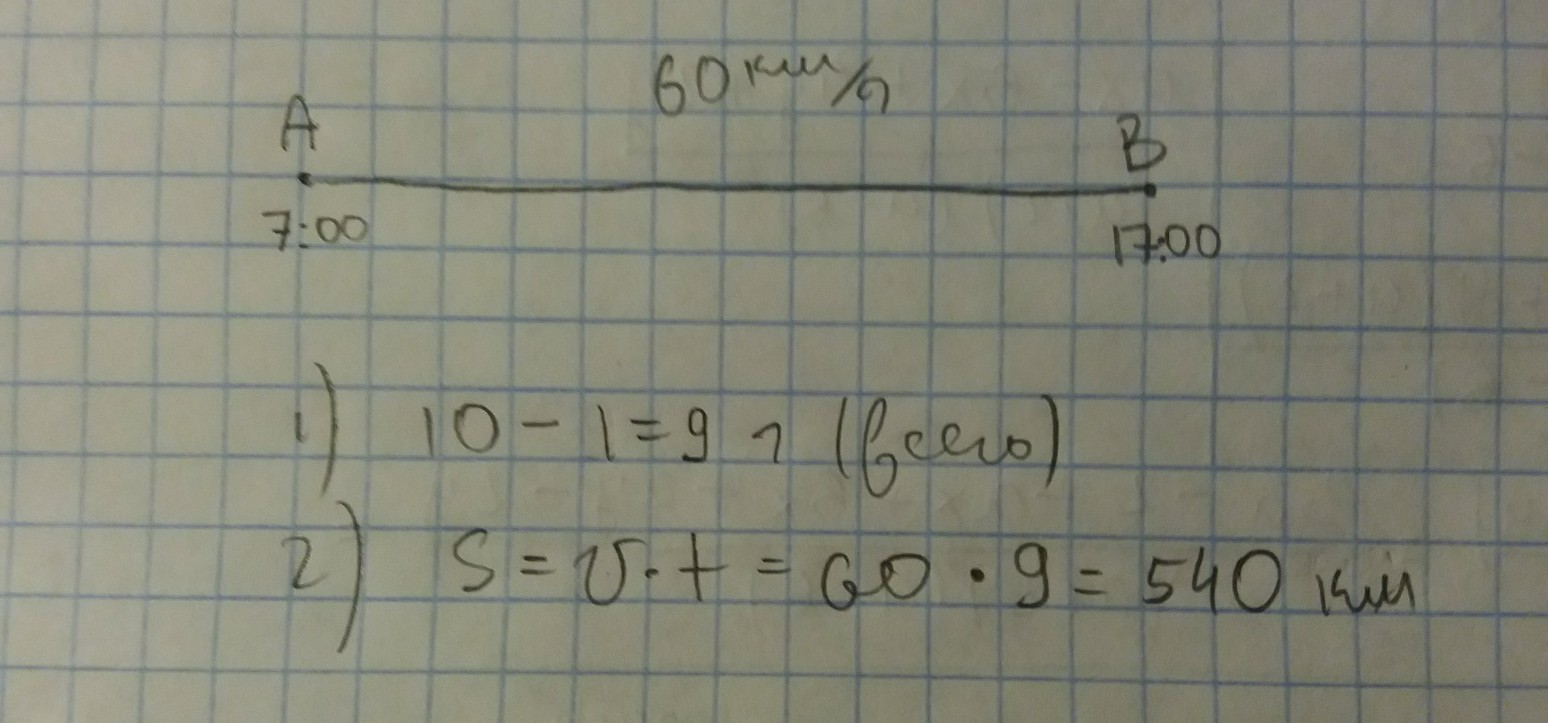 60 км/ч
A B
7:00 17:00
1) 10 - 1 = 9 ч (всего)
2) S = v · t = 60 · 9 = 540 км